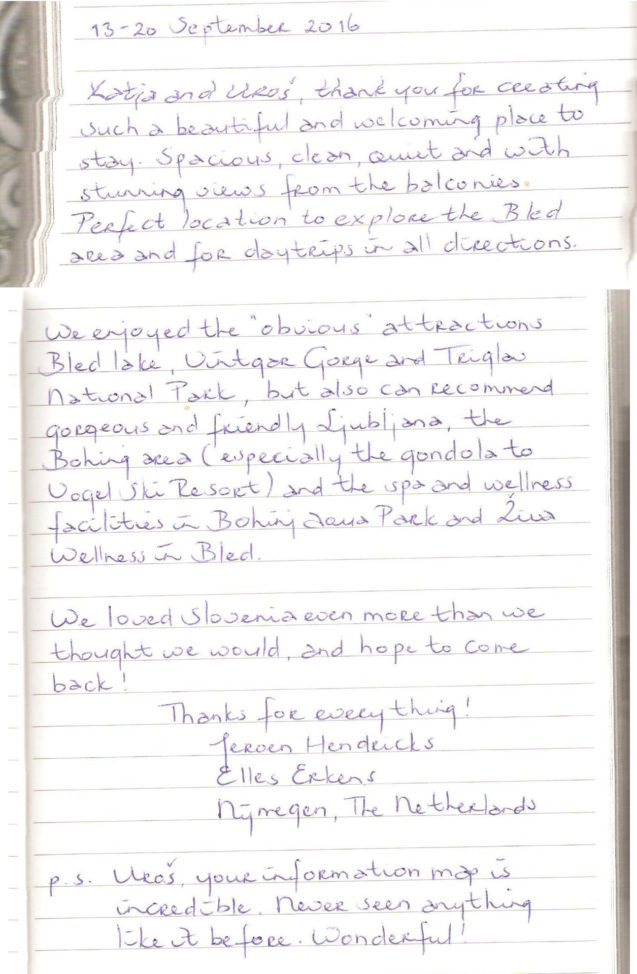 13-20 September 2016
Katja and Uroš, thank you for creating
such a beautiful and welcoming place to
stay. Spacious, clean, quiet and with
stunning views from the balconies.
Perfect location to explore the Bled
area and for daytrips in all directions.
We enjoyed the "obvious" attractions
Bled lake, Vintgar Gorge and Triglav
National Park, but also can recommend
gorgeous and friendly Ljubljana, the
Bohinj area (especially the gondola to
Vogel Ski Resort) and the spa and wellness
facilities in Bohinj Aqua Park and Živa
Wellness in Bled.
We loved Slovenia even more than we
thought we would, and hope to come
back!
Thanks for everything!
Jeroen Hendricks
Elles Erkens
Nijmegen, The Netherlands
p.s. Uroš, your information map is
incredible. Never seen anything
like it before. Wonderful!